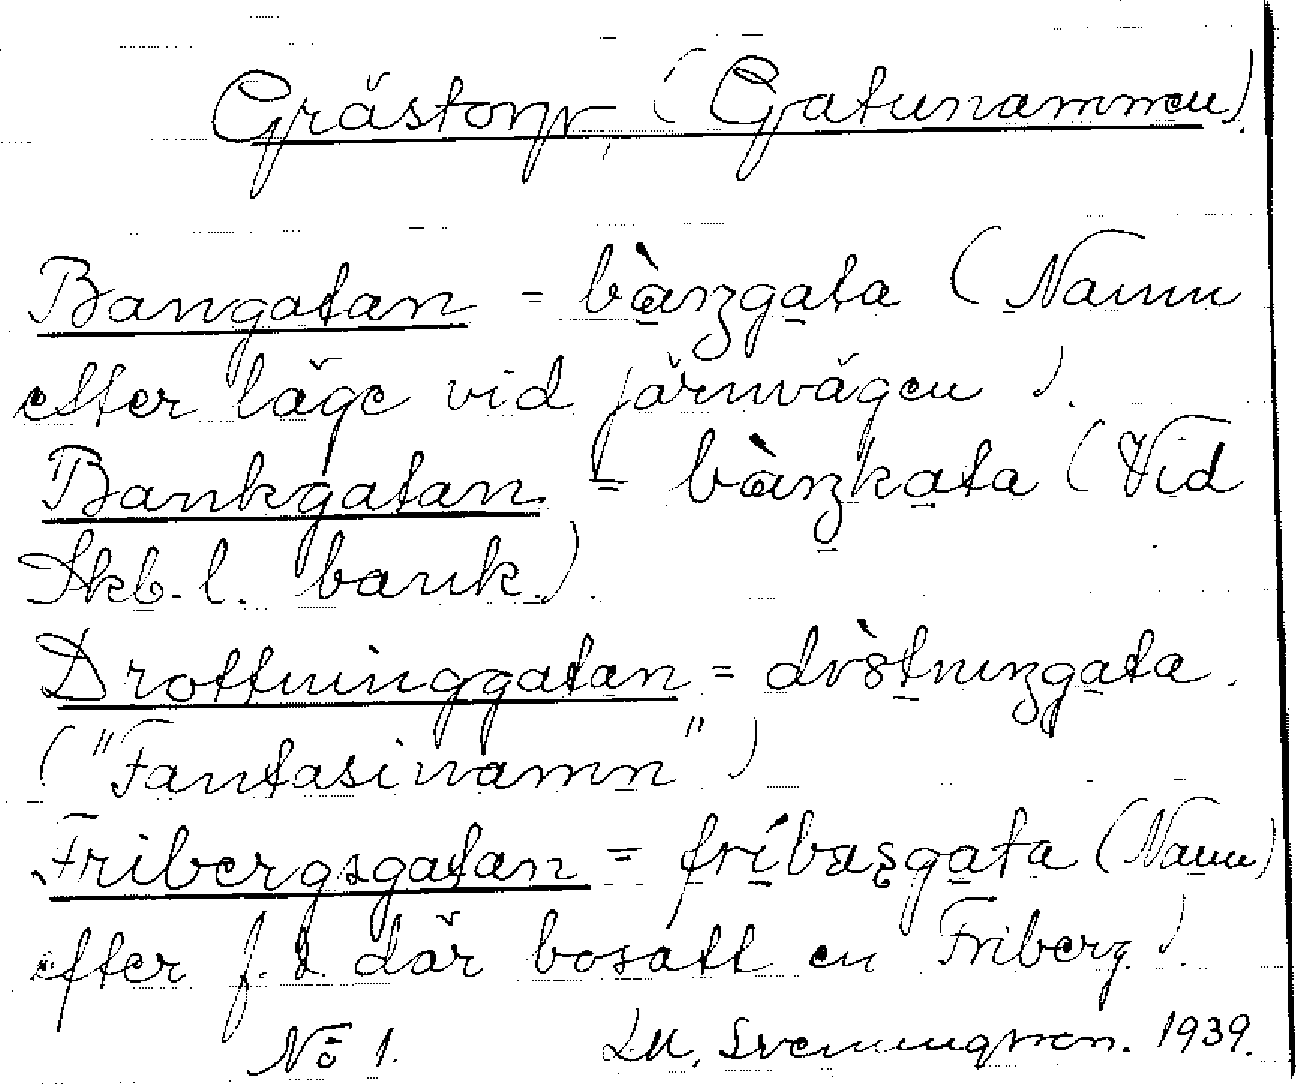 Grästorp (Gatunamnen).
Bangatan = bàŋgata (Namn
efter läge vid järnvägen).
Bankgatan = bàŋkata (Vid
Skb. l. bank.)
Drottninggatan = dròtnıŋgata.
("Fantasinamn")
Fribergsgatan = (Namn)
efter f. d. där bosatt en Friberg).
No 1. Svenungsson. 1939.